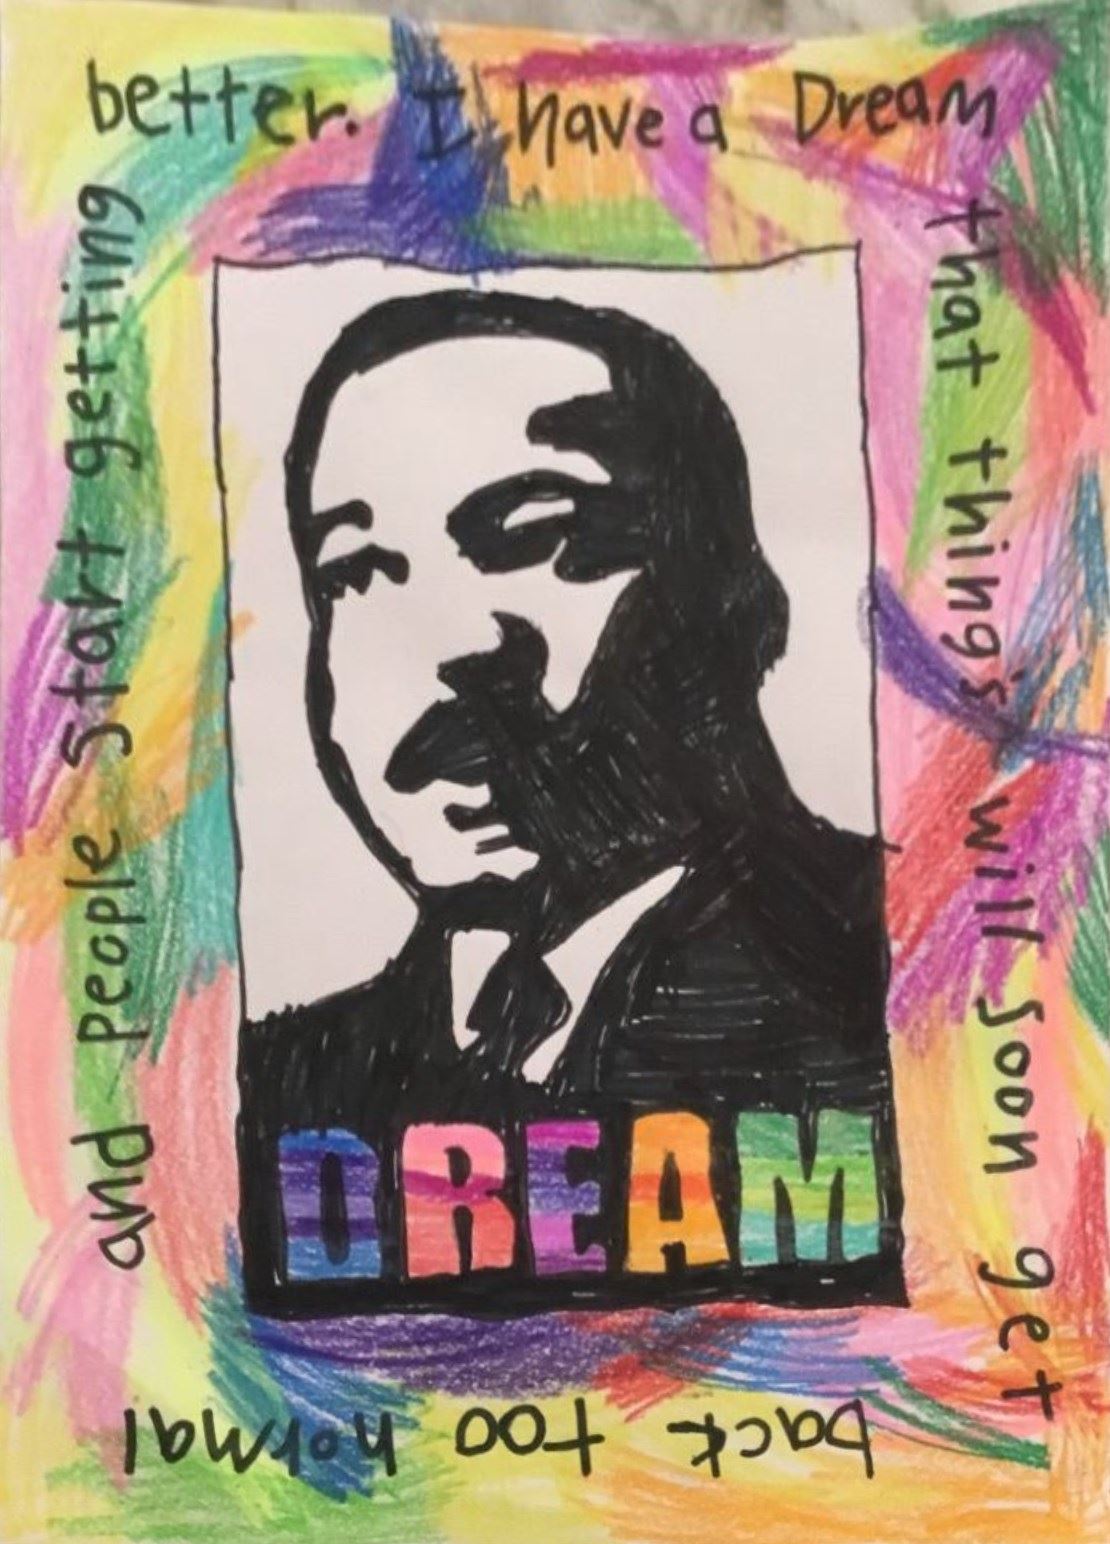 I have a Dream
that thing's will soon get
back too normal
and people start getting
better.
DREAM